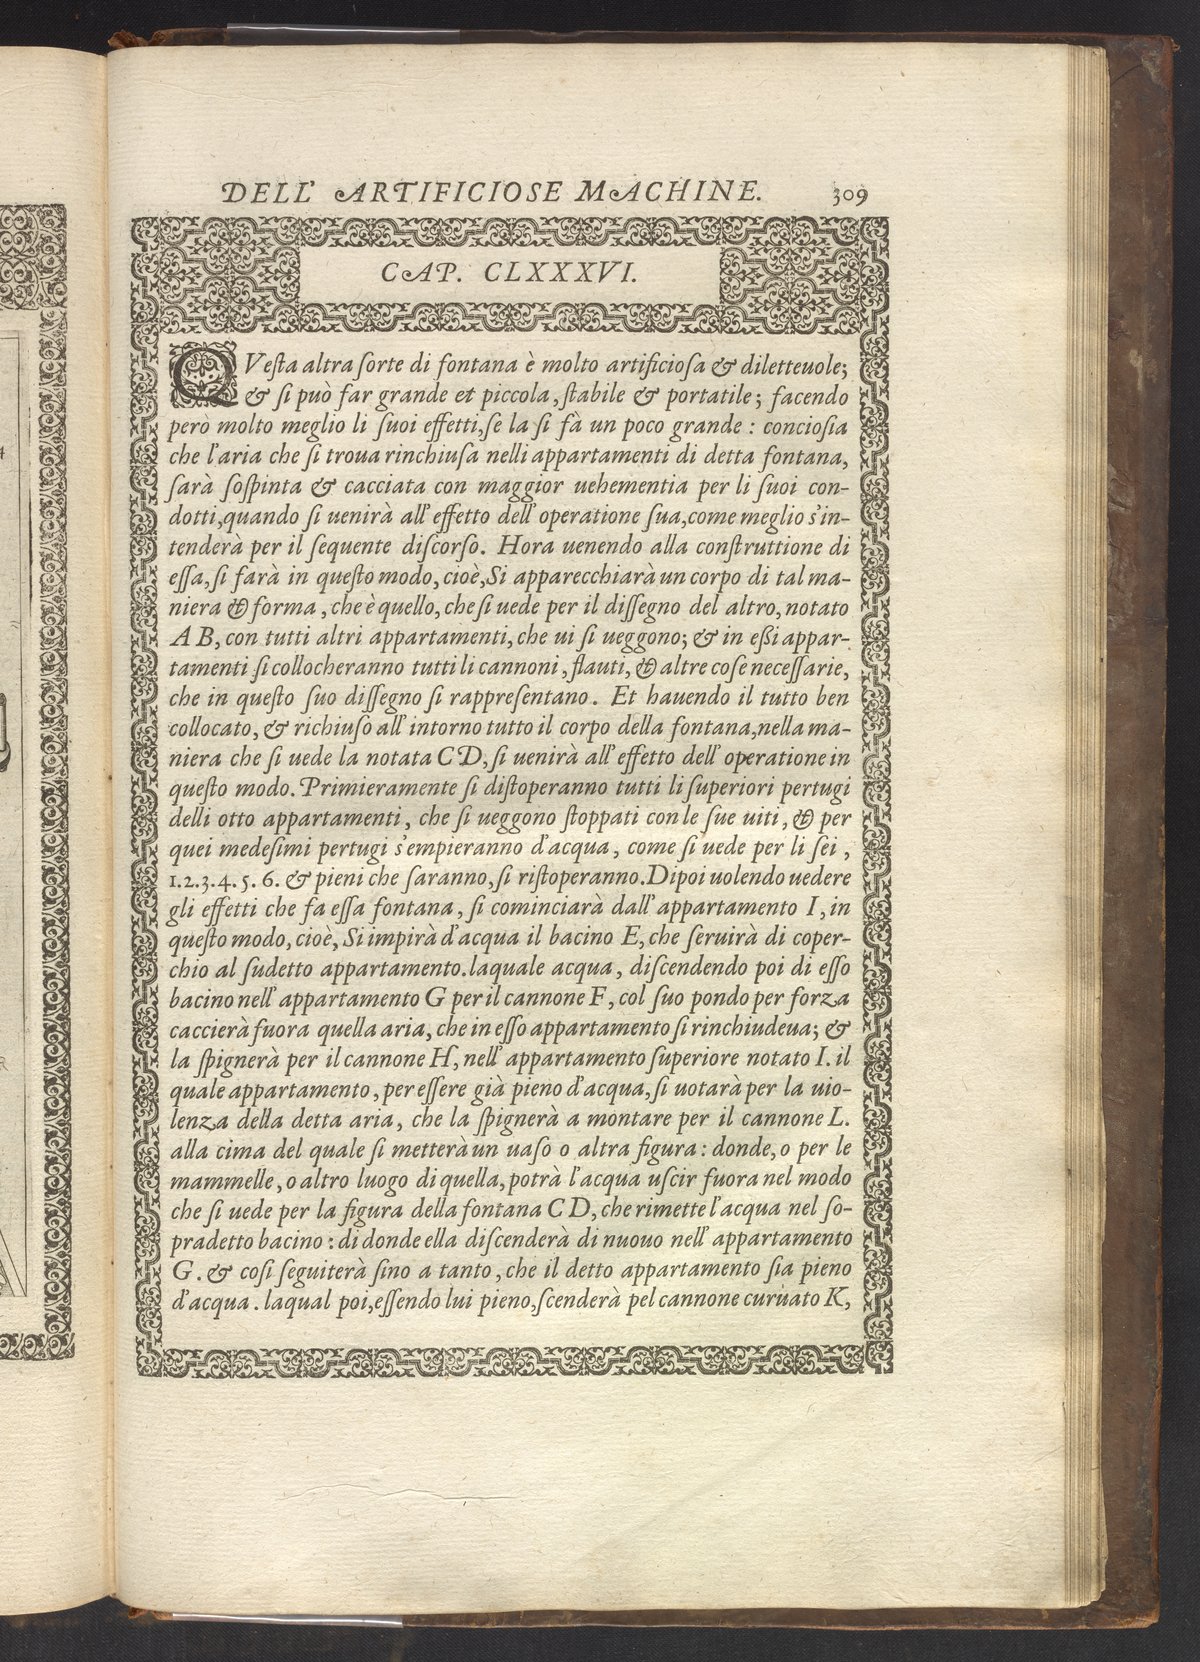 DELL' ARTIFICIOSE MACHINE. 309
CAP. CLXXXVI.
QVeſta altra ſorte di fontana è molto artificioſa & diletteuole;
& ſi può far grande et piccola, ſtabile & portatile; facendo
però molto meglio li ſuoi effetti, ſe la ſi fà un poco grande: concioſia
che l'aria che ſi troua rinchiuſa nelli appartamenti di detta fontana,
ſarà ſoſpinta & cacciata con maggior uehementia per li ſuoi con-
dotti, quando ſi uenirà all' effetto dell' operatione ſua, come meglio s'in-
tenderà per il ſequente diſcorſo. Hora uenendo alla conſtruttione di
eſſa, ſi farà in queſto modo, cioè, Si apparecchiarà un corpo di tal ma-
niera & forma, che è quello, che ſi uede per il diſſegno del altro, notato
A B, con tutti altri appartamenti, che ui ſi ueggono; & in eßi appar-
tamenti ſi collocheranno tutti li cannoni, flauti, & altre coſe neceſſarie,
che in queſto ſuo diſſegno ſi rappreſentano. Et hauendo il tutto ben
collocato, & richiuſo all' intorno tutto il corpo della fontana, nella ma-
niera che ſi uede la notata C D, ſi uenirà all' effetto dell' operatione in
queſto modo. Primieramente ſi diſtoperanno tutti li ſuperiori pertugi
delli otto appartamenti, che ſi ueggono ſtoppati con le ſue uiti, & per
quei medeſimi pertugi s'empieranno d'acqua, come ſi uede per li ſei,
1. 2. 3. 4. 5. 6. & pieni che ſaranno, ſi riſtoperanno. Dipoi uolendo uedere
gli effetti che fa eſſa fontana, ſi cominciarà dall' appartamento I, in
queſto modo, cioè, Si impirà d'acqua il bacino E, che ſeruirà di coper-
chio al ſudetto appartamento. laquale acqua, diſcendendo poi di eſſo
bacino nell' appartamento G per il cannone F, col ſuo pondo per forza
caccierà fuora quella aria, che in eſſo appartamento ſi rinchiudeua; &
la ſpignerà per il cannone H, nell' appartamento ſuperiore notato I. il
quale appartamento, per eſſere già pieno d'acqua, ſi uotarà per la uio-
lenza della detta aria, che la ſpignerà a montare per il cannone L.
alla cima del quale ſi metterà un uaſo o altra figura: donde, o per le
mammelle, o altro luogo di quella, potrà l'acqua uſcir fuora nel modo
che ſi uede per la figura della fontana C D, che rimette l'acqua nel ſo-
pradetto bacino: di donde ella diſcenderà di nuouo nell' appartamento
G. & coſi ſeguiterà ſino a tanto, che il detto appartamento ſia pieno
d'acqua. laqual poi, eſſendo lui pieno, ſcenderà pel cannone curuato K,